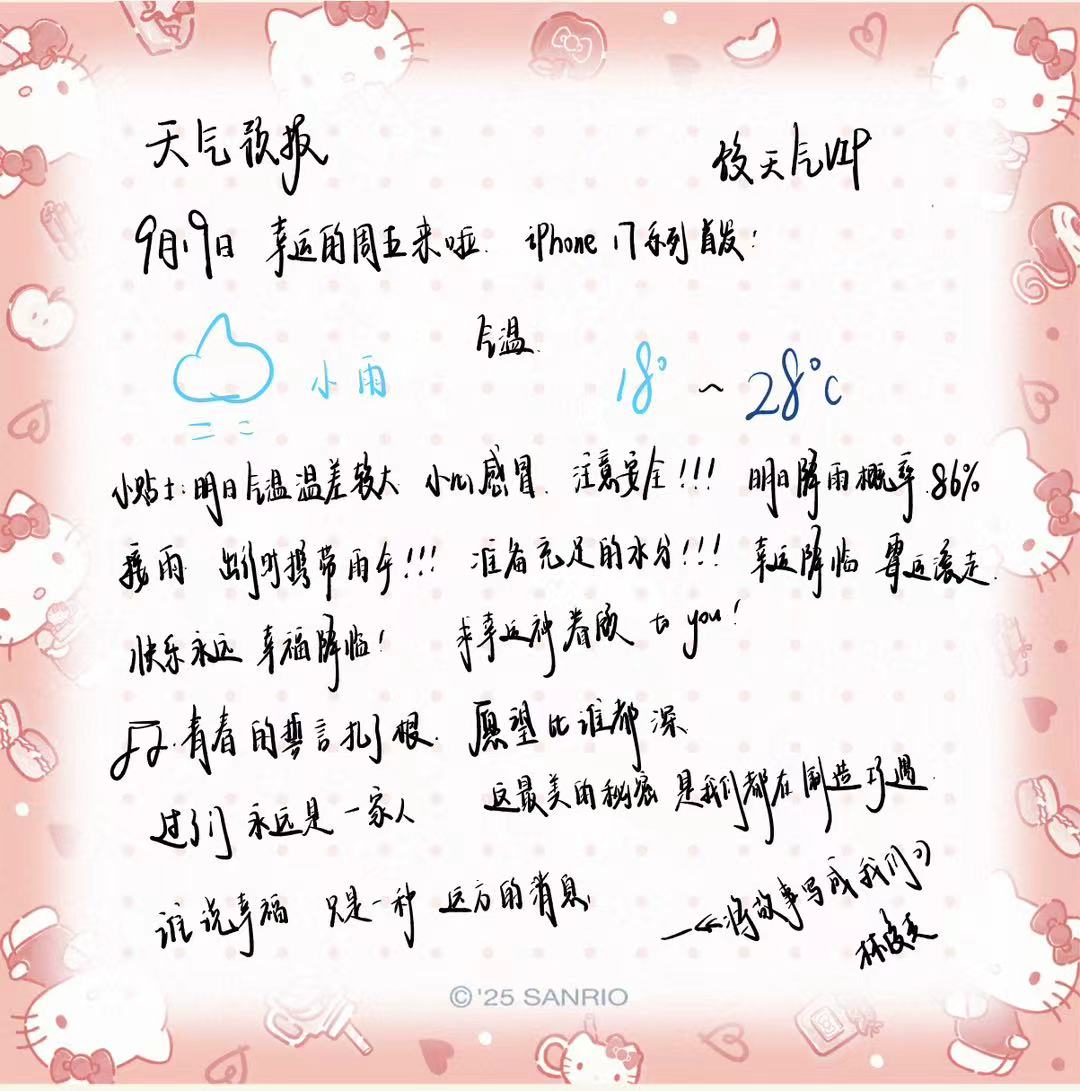 天气预报
天气VIP
9月19日 幸运的周五来啦. iPhone 17系列首发!
气温.
小雨 18° ~ 28°C
小贴士:明日气温温差较大 小心感冒. 注意安全!!! 明日降雨概率 86%
雨 出行时携带雨伞!!! 准备充足的水分!!! 幸运降临 霉运滚走.
快乐永远 幸福降临! 幸运神眷顾 to you!
♫. 青春的誓言扎了根. 愿望比谁都深
过了门 永远是一家人 这最美的秘密 是我们都在制造巧遇.
谁说幸福 只是一种 远方的消息
—《将故事写成我们》
林俊杰
©'25 SANRIO